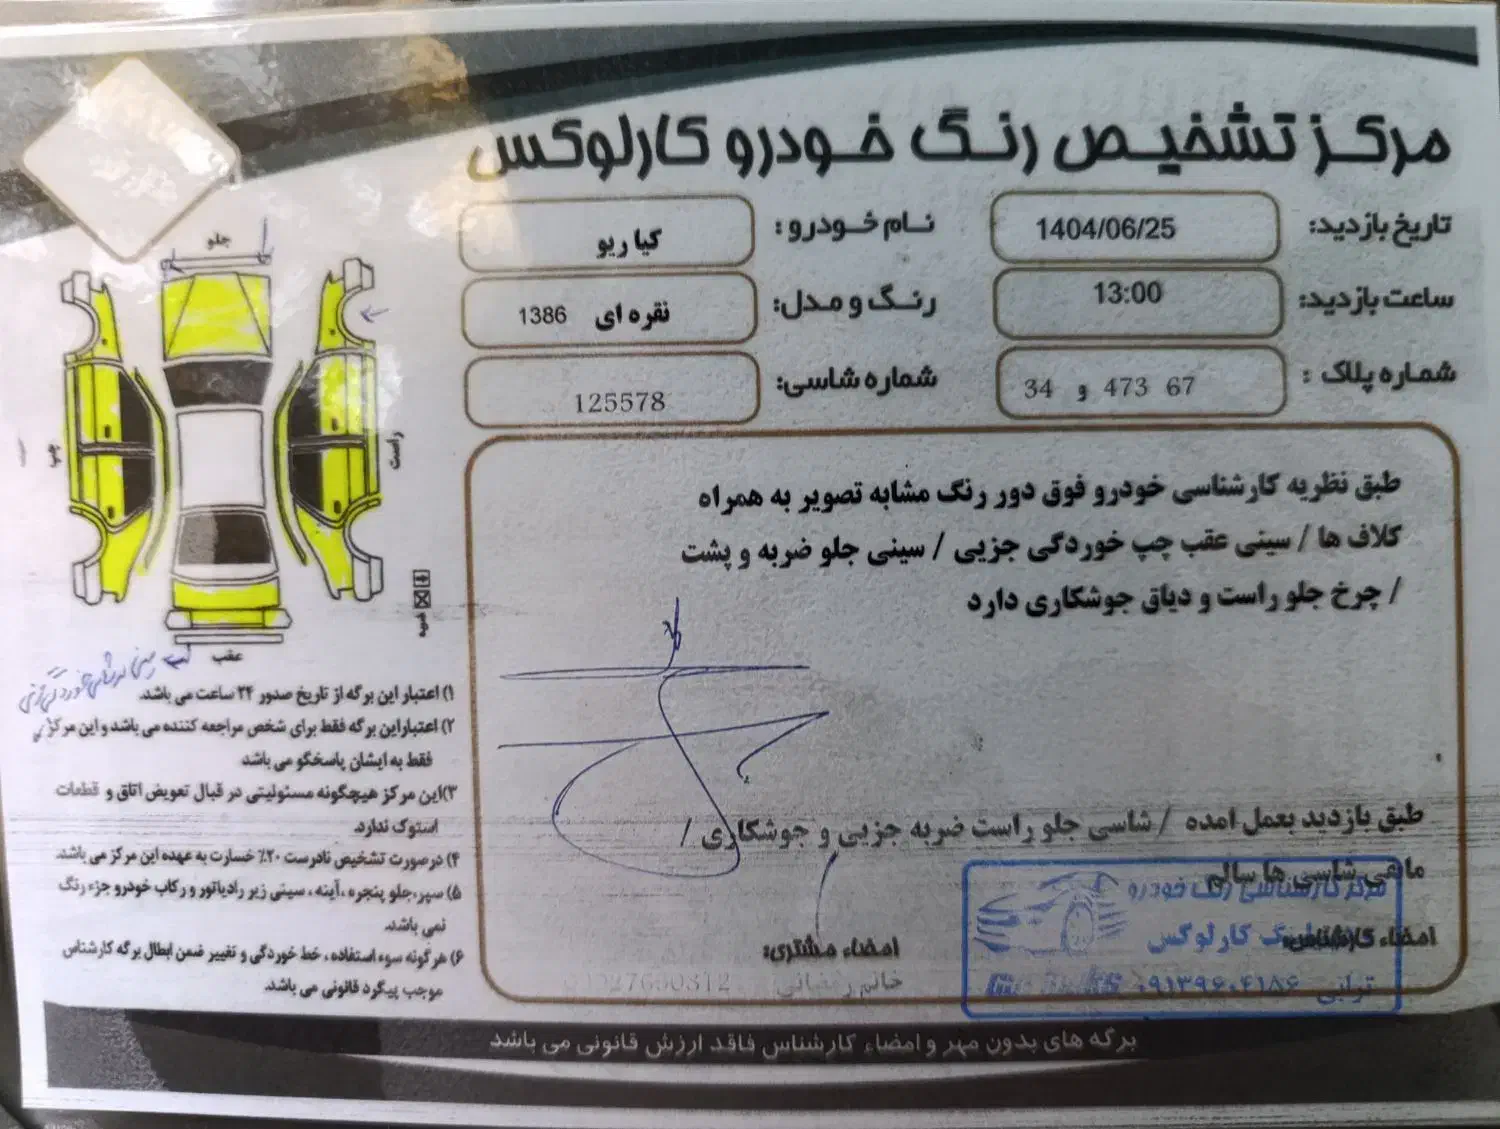 مرکز تشخیص رنگ خودرو کارلوکس
تاریخ بازدید: 1404/06/25
نام خودرو: کیا ریو
ساعت بازدید: 13:00
رنگ و مدل: نقره ای 1386
شماره پلاک: 67 473 و 34
شماره شاسی: 125578
طبق نظریه کارشناسی خودرو فوق دور رنگ مشابه تصویر به همراه
کلاف ها / سینی عقب چپ خوردگی جزیی / سینی جلو ضربه و پشت
/ چرخ جلو راست و دیاق جوشکاری دارد
طبق بازدید بعمل امده / شاسی جلو راست ضربه جزیی و جوشکاری /
ماهی شاسی ها سالم
امضاء کارشناس:
امضاء مشتری:
خانم رمضانی
مرکز کارشناسی رنگ خودرو
کارلوکس
ترابی ۰۹۱۳۹۶۰۴۱۸۶
جلو
چپ
راست
عقب
ضربه
۱) اعتبار این برگه از تاریخ صدور ۲۴ ساعت می باشد.
۲) اعتباراین برگه فقط برای شخص مراجعه کننده می باشد و این مرکز
فقط به ایشان پاسخگو می باشد
۳)این مرکز هیچگونه مسئولیتی در قبال تعویض اتاق و قطعات
استوک ندارد.
۴) درصورت تشخیص نادرست ۲۰٪ خسارت به عهده این مرکز می باشد.
۵) سپر،جلو پنجره ،آینه ، سینی زیر رادیاتور و رکاب خودرو جزء رنگ
نمی باشد.
۶) هرگونه سوء استفاده ، خط خوردگی و تغییر ضمن ابطال برگه کارشناس
موجب پیگرد قانونی می باشد.
برگه های بدون مهر و امضاء کارشناس فاقد ارزش قانونی می باشد